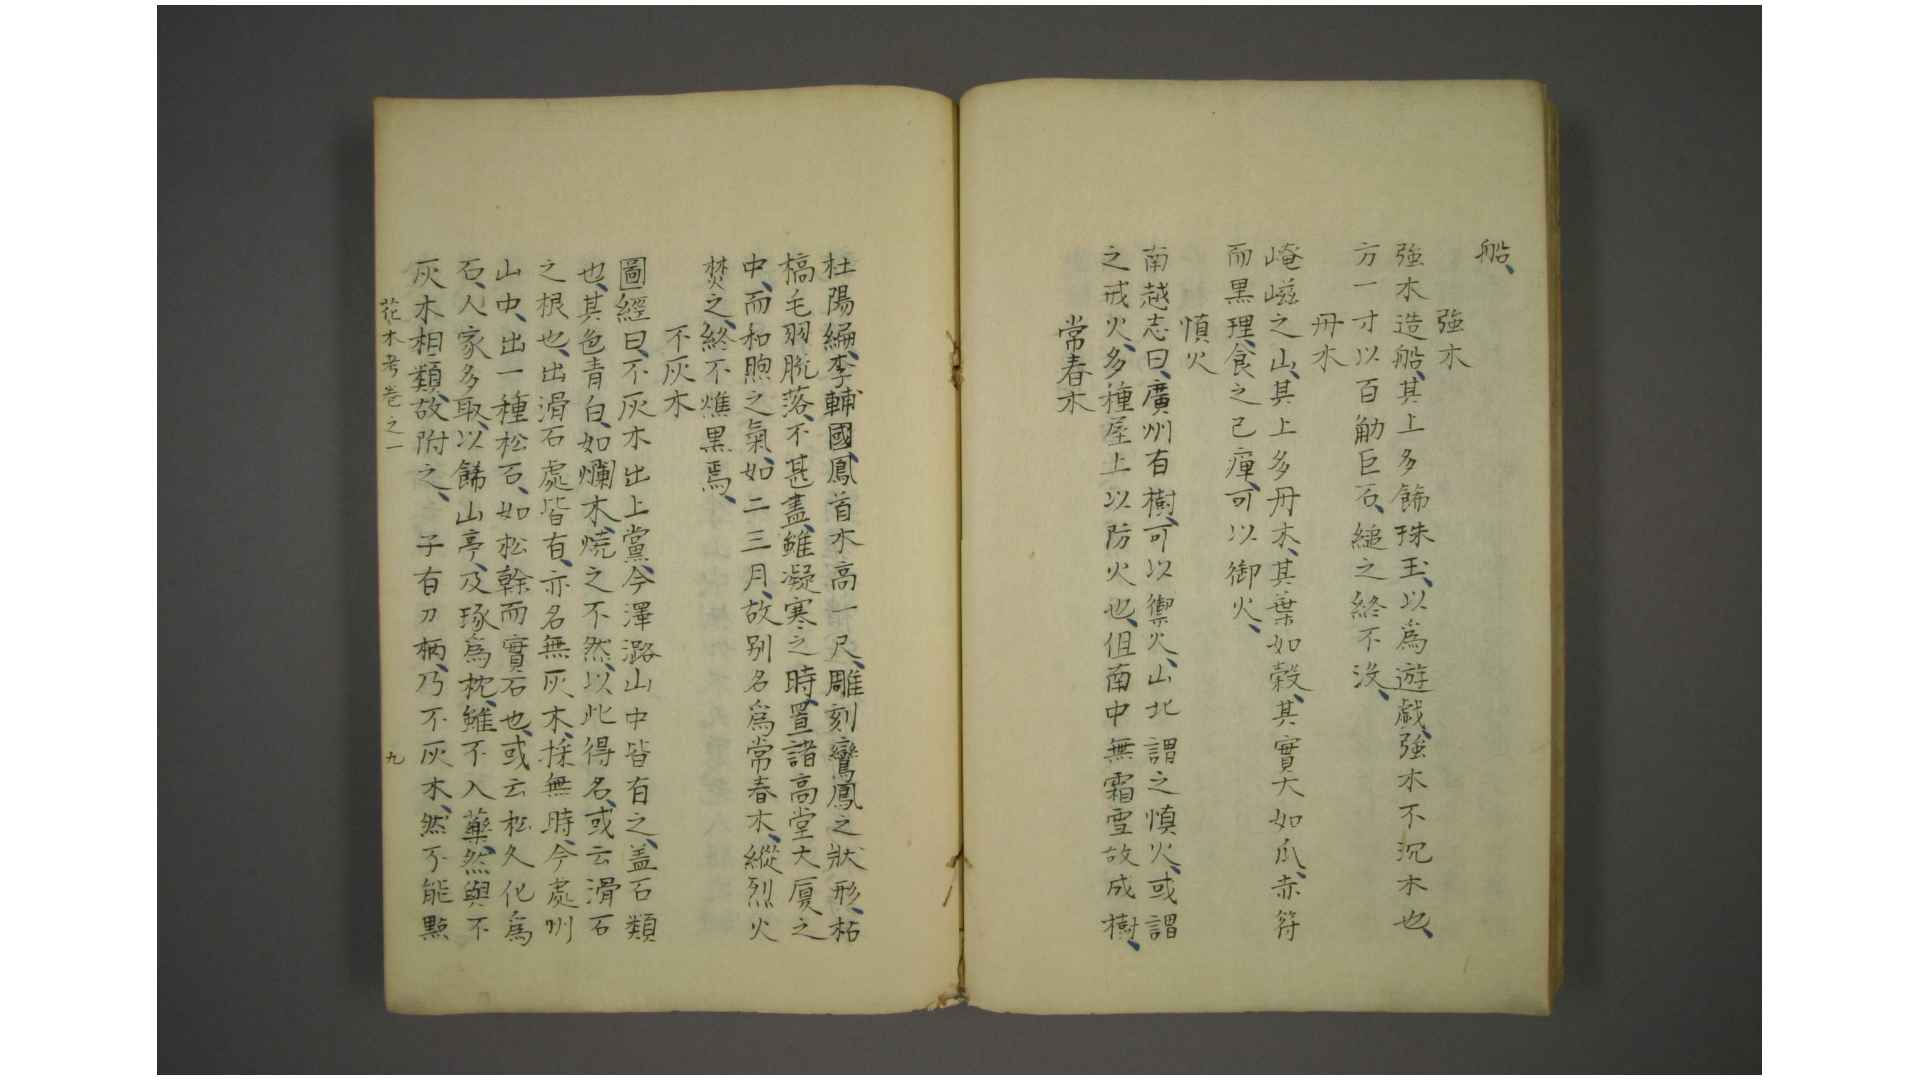 船、
強木
強木造船、其上多餙珠玉、以爲遊戯、強木不沉木也、
方一寸以百觔巨石、縋之終不没、
丹木
崦嵫之山、其上多丹木、其葉如榖、其實大如瓜、赤符
而黒理、食之已癉、可以御火、
慎火
南越志曰、廣州有樹、可以禦火、山北謂之慎火、或謂
之戒火、多種屋上以防火也、但南中無霜雪故成樹、
常春木
杜陽編、李輔國、鳳首木高一尺、雕刻鸞鳳之狀形、枯
槁毛羽脱落、不甚盡、雖凝寒之時、置諸高堂大厦之
中、而和煦之氣、如二三月、故别名爲常春木、縱烈火
焚之、終不燋黒焉、
不灰木
圖經曰、不灰木出上黨、今澤潞山中皆有之、盖石類
也、其色青白、如爛木、焼之不然、以此得名、或云滑石
之根也、出滑石處皆有、亦名無灰木、採無時、今處州
山中、出一種松石、如松榦而實石也、或云松久化爲
石、人家多取、以餙山亭、及琢爲枕、雖不入藥、然與不
灰木相類、故附之、 子有刀柄、乃不灰木、然不能點
花木考卷之一
九